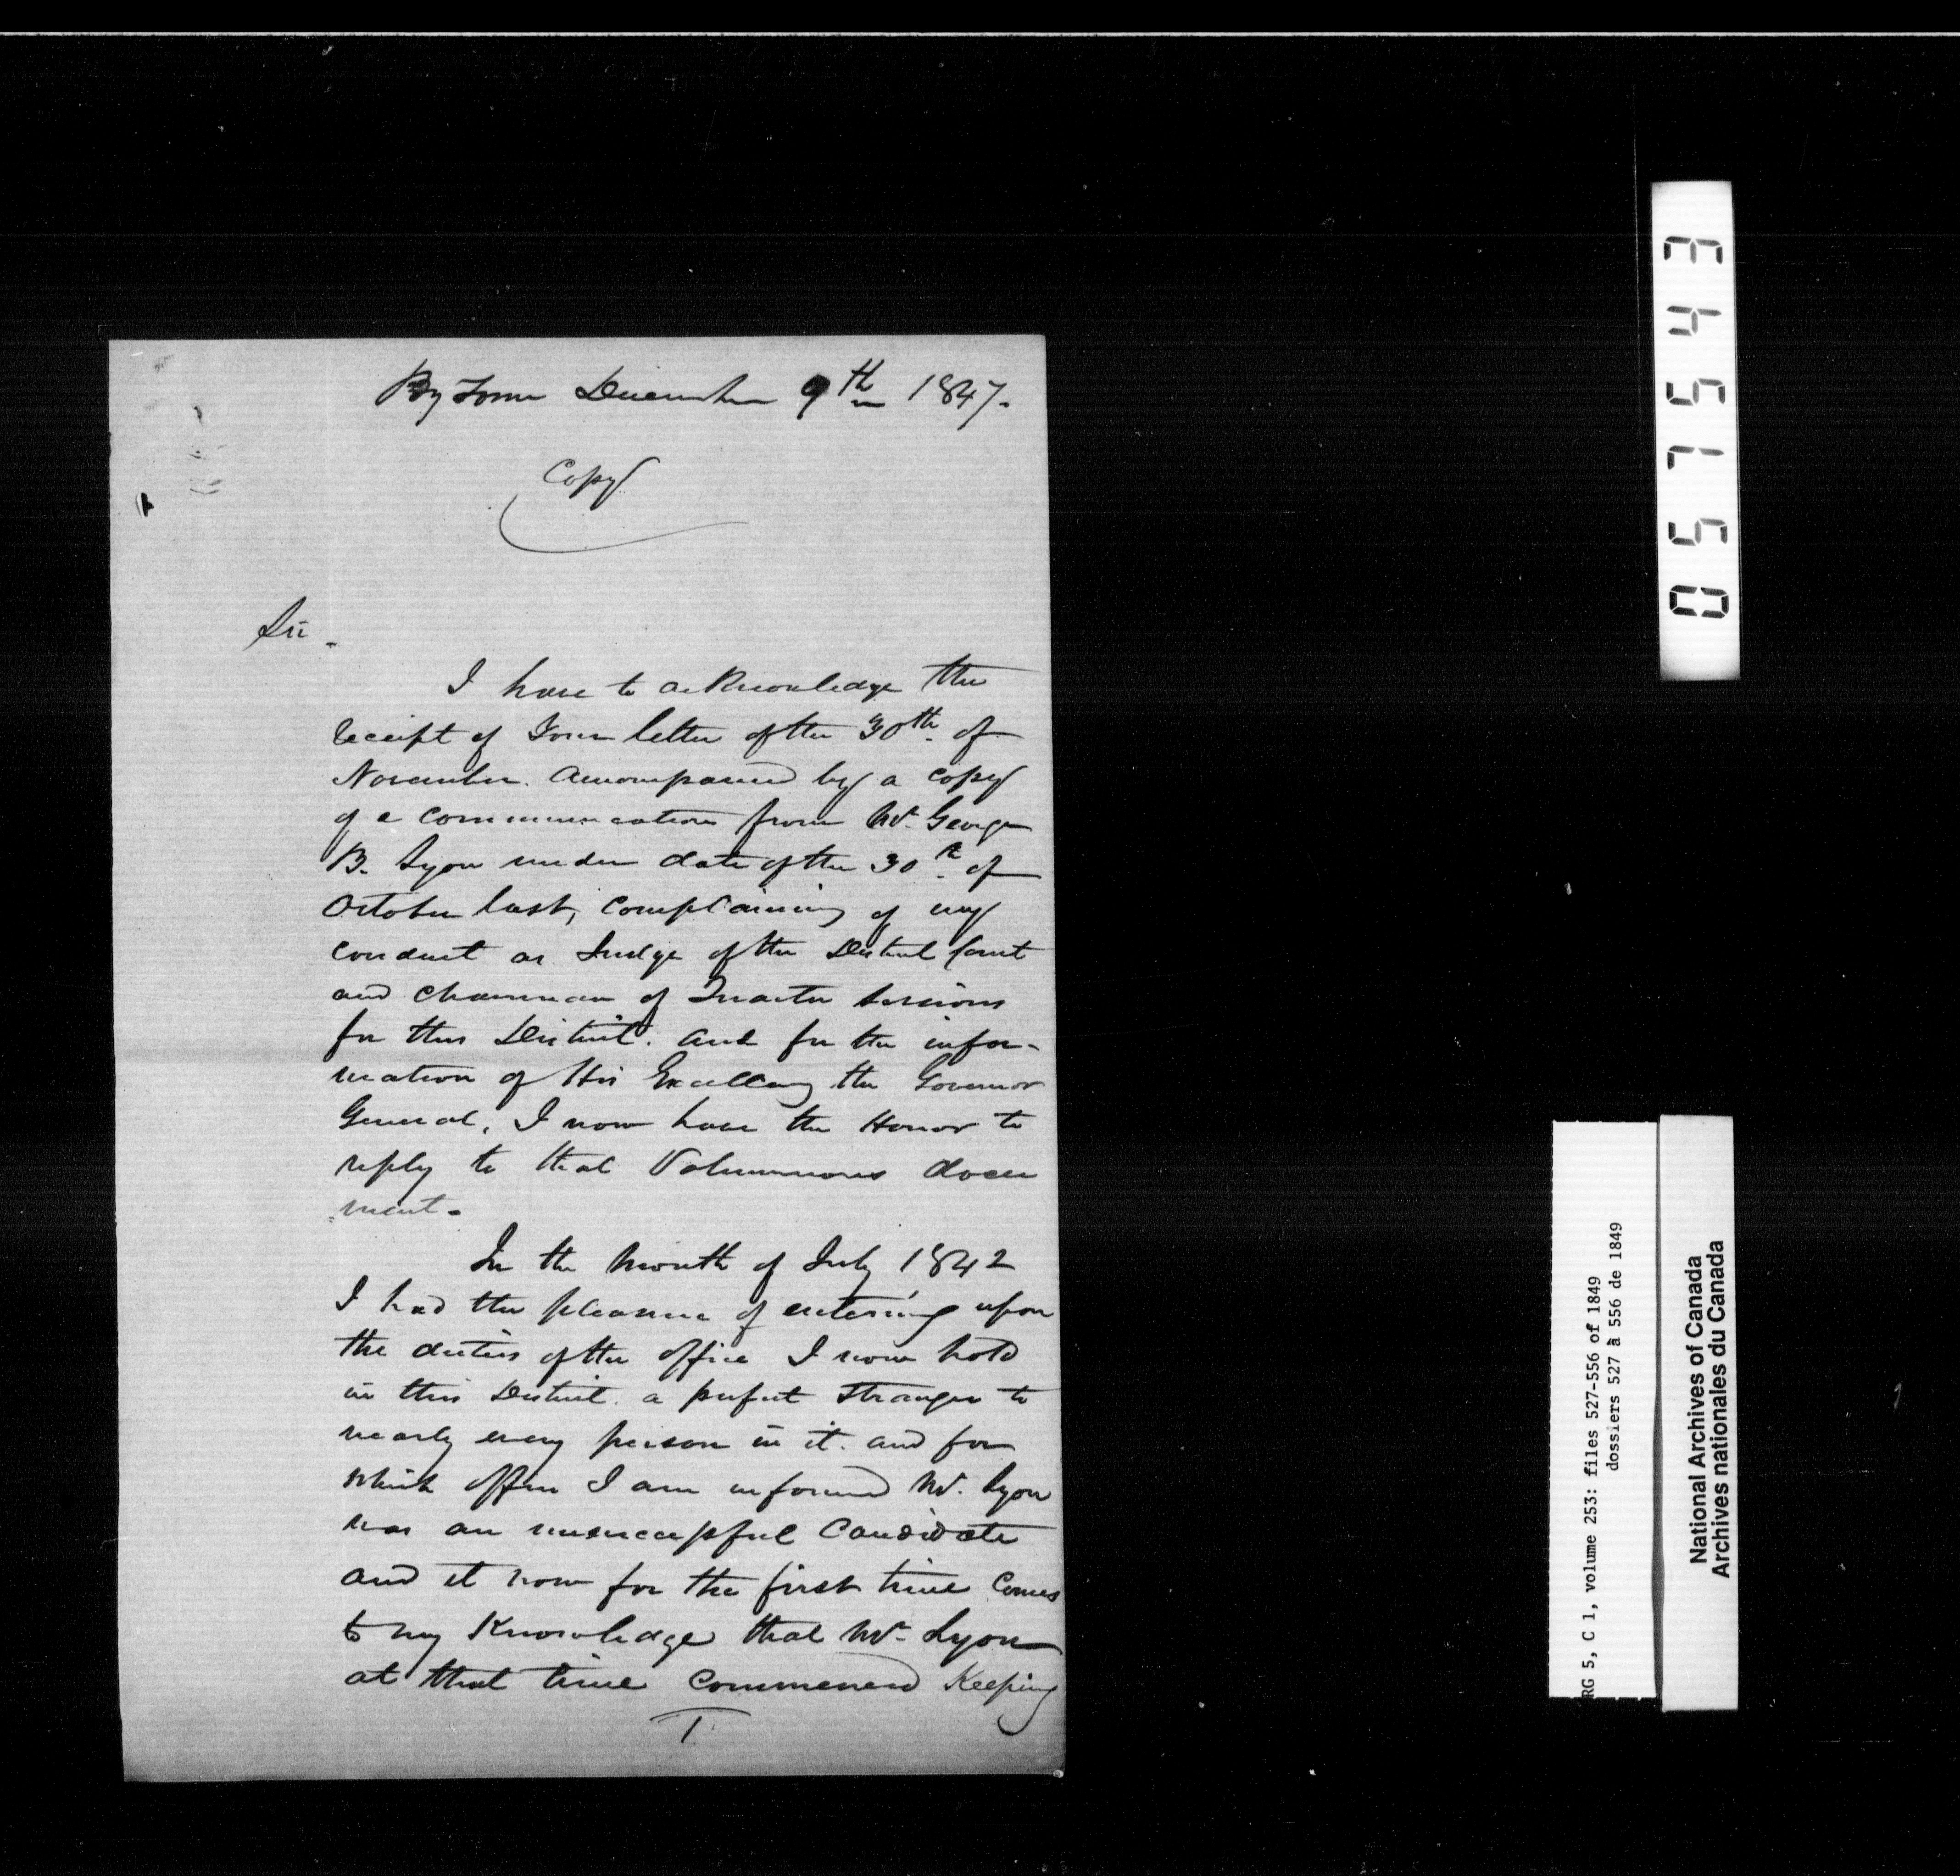 By Town December 9th 1847.
Copy
Sir -
I have to acknowledge the
receipt of Your letter of the 30th of
November. Accompanied by a copy
of a communication from Mr. George
B. Lyon under date of the 30th of
October last, complaining of my
conduct as Judge of the District Court
and Chairman of Quarter Sessions
for this District. and for the infor-
mation of His Excellency the Governor
General, I now have the Honor to
reply to that Voluminous docu
=ment -
In the Month of July 1842
I had the pleasure of entering upon
the duties of the office I now hold
in this District. a perfect Stranger to
nearly every person in it. and for
which office I am informed Mr. Lyon
was an unsuccessful Candidate
and it now for the first time Comes
to my Knowledge that Mr. Lyon
at that time Commenced Keeping
1
057543
RG 5, C 1, volume 253: files 527-556 of 1849
dossiers 527 à 556 de 1849
National Archives of Canada
Archives nationales du Canada